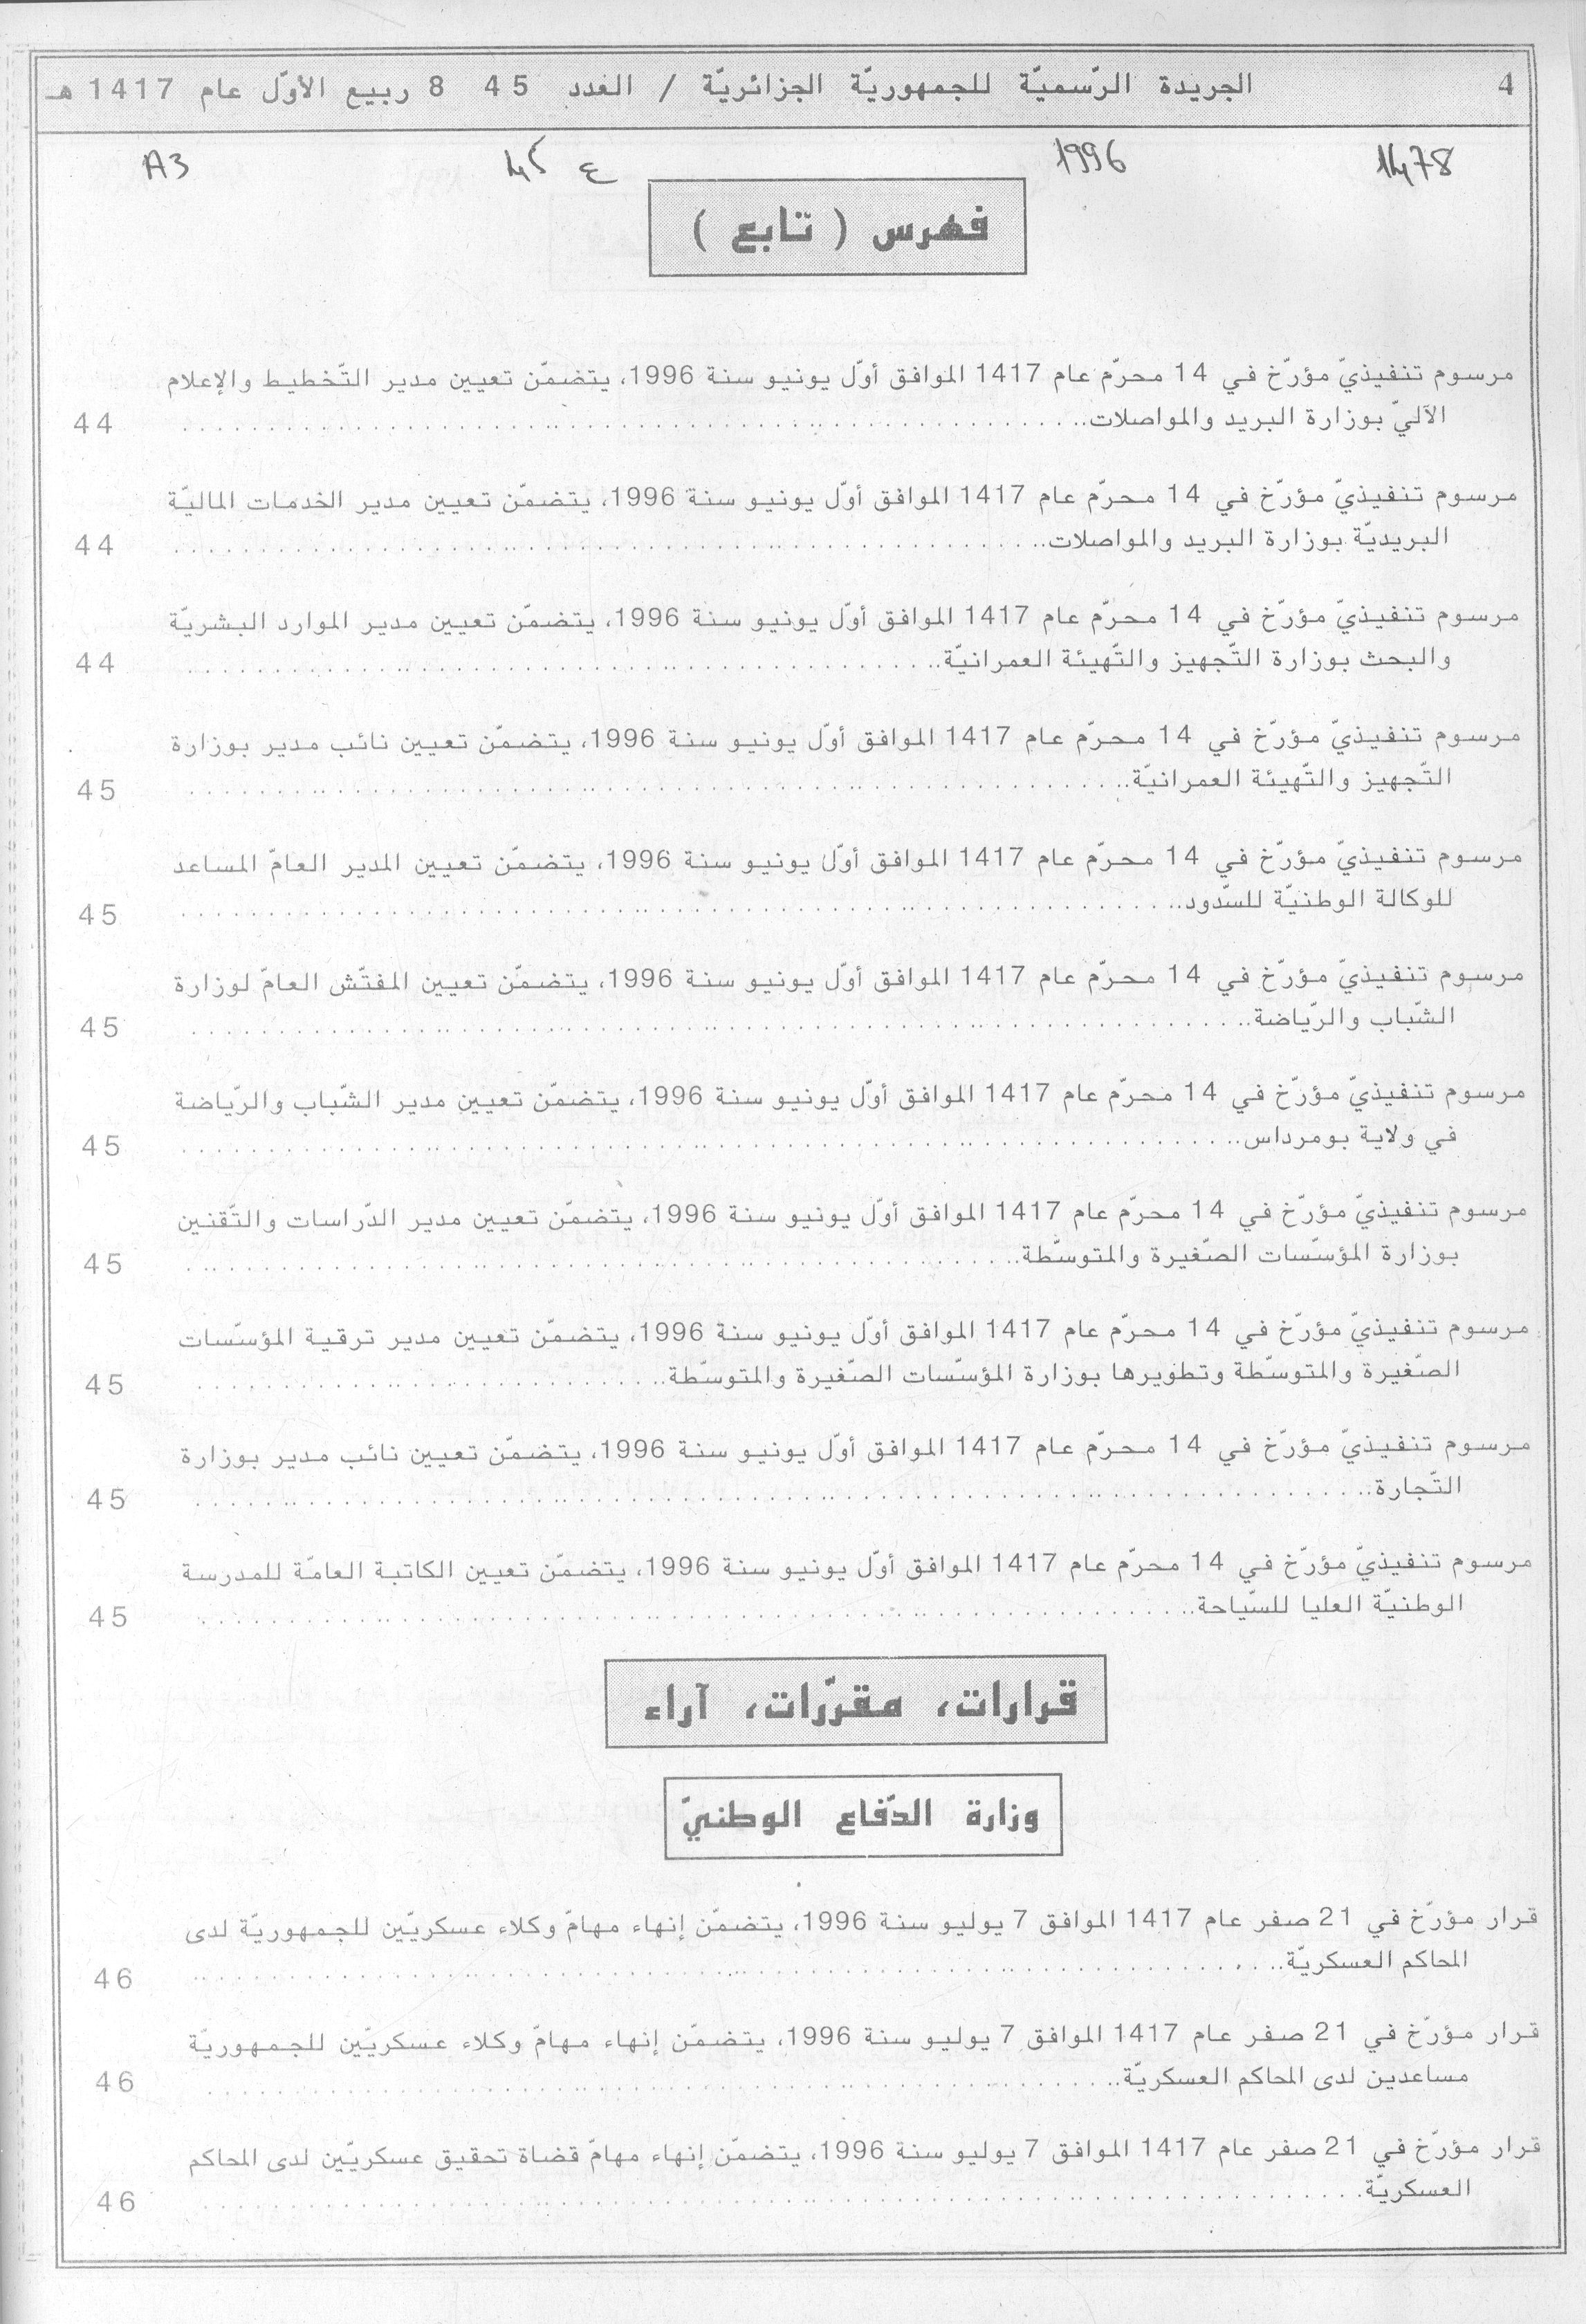 4 الجريدة الرّسميّة للجمهوريّة الجزائريّة / العدد 45 8 ربيع الأوّل عام 1417 هـ
1478 1996 ع 45 A3
فهرس ( تابع )
مرسوم تنفيذيّ مؤرّخ في 14 محرّم عام 1417 الموافق أوّل يونيو سنة 1996، يتضمّن تعيين مدير التّخطيط والإعلام
الآليّ بوزارة البريد والمواصلات.. 44
مرسوم تنفيذيّ مؤرّخ في 14 محرّم عام 1417 الموافق أوّل يونيو سنة 1996، يتضمّن تعيين مدير الخدمات الماليّة
البريديّة بوزارة البريد والمواصلات.. 44
مرسوم تنفيذيّ مؤرّخ في 14 محرّم عام 1417 الموافق أوّل يونيو سنة 1996، يتضمّن تعيين مدير الموارد البشريّة
والبحث بوزارة التّجهيز والتّهيئة العمرانيّة.. 44
مرسوم تنفيذيّ مؤرّخ في 14 محرّم عام 1417 الموافق أوّل يونيو سنة 1996، يتضمّن تعيين نائب مدير بوزارة
التّجهيز والتّهيئة العمرانيّة.. 45
مرسوم تنفيذيّ مؤرّخ في 14 محرّم عام 1417 الموافق أوّل يونيو سنة 1996، يتضمّن تعيين المدير العامّ المساعد
للوكالة الوطنيّة للسّدود.. 45
مرسوم تنفيذيّ مؤرّخ في 14 محرّم عام 1417 الموافق أوّل يونيو سنة 1996، يتضمّن تعيين المفتّش العامّ لوزارة
الشّباب والرّياضة.. 45
مرسوم تنفيذيّ مؤرّخ في 14 محرّم عام 1417 الموافق أوّل يونيو سنة 1996، يتضمّن تعيين مدير الشّباب والرّياضة
في ولاية بومرداس.. 45
مرسوم تنفيذيّ مؤرّخ في 14 محرّم عام 1417 الموافق أوّل يونيو سنة 1996، يتضمّن تعيين مدير الدّراسات والتّقنين
بوزارة المؤسّسات الصّغيرة والمتوسّطة.. 45
مرسوم تنفيذيّ مؤرّخ في 14 محرّم عام 1417 الموافق أوّل يونيو سنة 1996، يتضمّن تعيين مدير ترقية المؤسّسات
الصّغيرة والمتوسّطة وتطويرها بوزارة المؤسّسات الصّغيرة والمتوسّطة.. 45
مرسوم تنفيذيّ مؤرّخ في 14 محرّم عام 1417 الموافق أوّل يونيو سنة 1996، يتضمّن تعيين نائب مدير بوزارة
التّجارة.. 45
مرسوم تنفيذيّ مؤرّخ في 14 محرّم عام 1417 الموافق أوّل يونيو سنة 1996، يتضمّن تعيين الكاتبة العامّة للمدرسة
الوطنيّة العليا للسّياحة.. 45
قرارات، مقرّرات، آراء
وزارة الدّفاع الوطنيّ
قرار مؤرّخ في 21 صفر عام 1417 الموافق 7 يوليو سنة 1996، يتضمّن إنهاء مهامّ وكلاء عسكريّين للجمهوريّة لدى
المحاكم العسكريّة.. 46
قرار مؤرّخ في 21 صفر عام 1417 الموافق 7 يوليو سنة 1996، يتضمّن إنهاء مهامّ وكلاء عسكريّين للجمهوريّة
مساعدين لدى المحاكم العسكريّة.. 46
قرار مؤرّخ في 21 صفر عام 1417 الموافق 7 يوليو سنة 1996، يتضمّن إنهاء مهامّ قضاة تحقيق عسكريّين لدى المحاكم
العسكريّة. 46